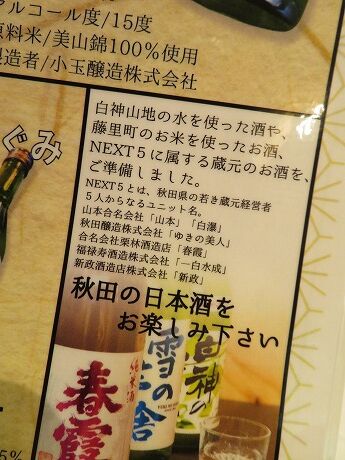 アルコール度/15度
原料米/美山錦100%使用
製造者/小玉醸造株式会社
ぐみ
白神山地の水を使った酒や、
藤里町のお米を使ったお酒、
NEXT5に属する蔵元のお酒を、
ご準備しました。
NEXT5とは、秋田県の若き蔵元経営者
5人からなるユニット名。
山本合名会社「山本」「白瀑」
秋田醸造株式会社「ゆきの美人」
合名会社栗林酒造店「春霞」
福禄寿酒造株式会社「一白水成」
新政酒造株式会社「新政」
秋田の日本酒を
お楽しみ下さい
純米酒
春霞
雪の
舎
白神の
5%